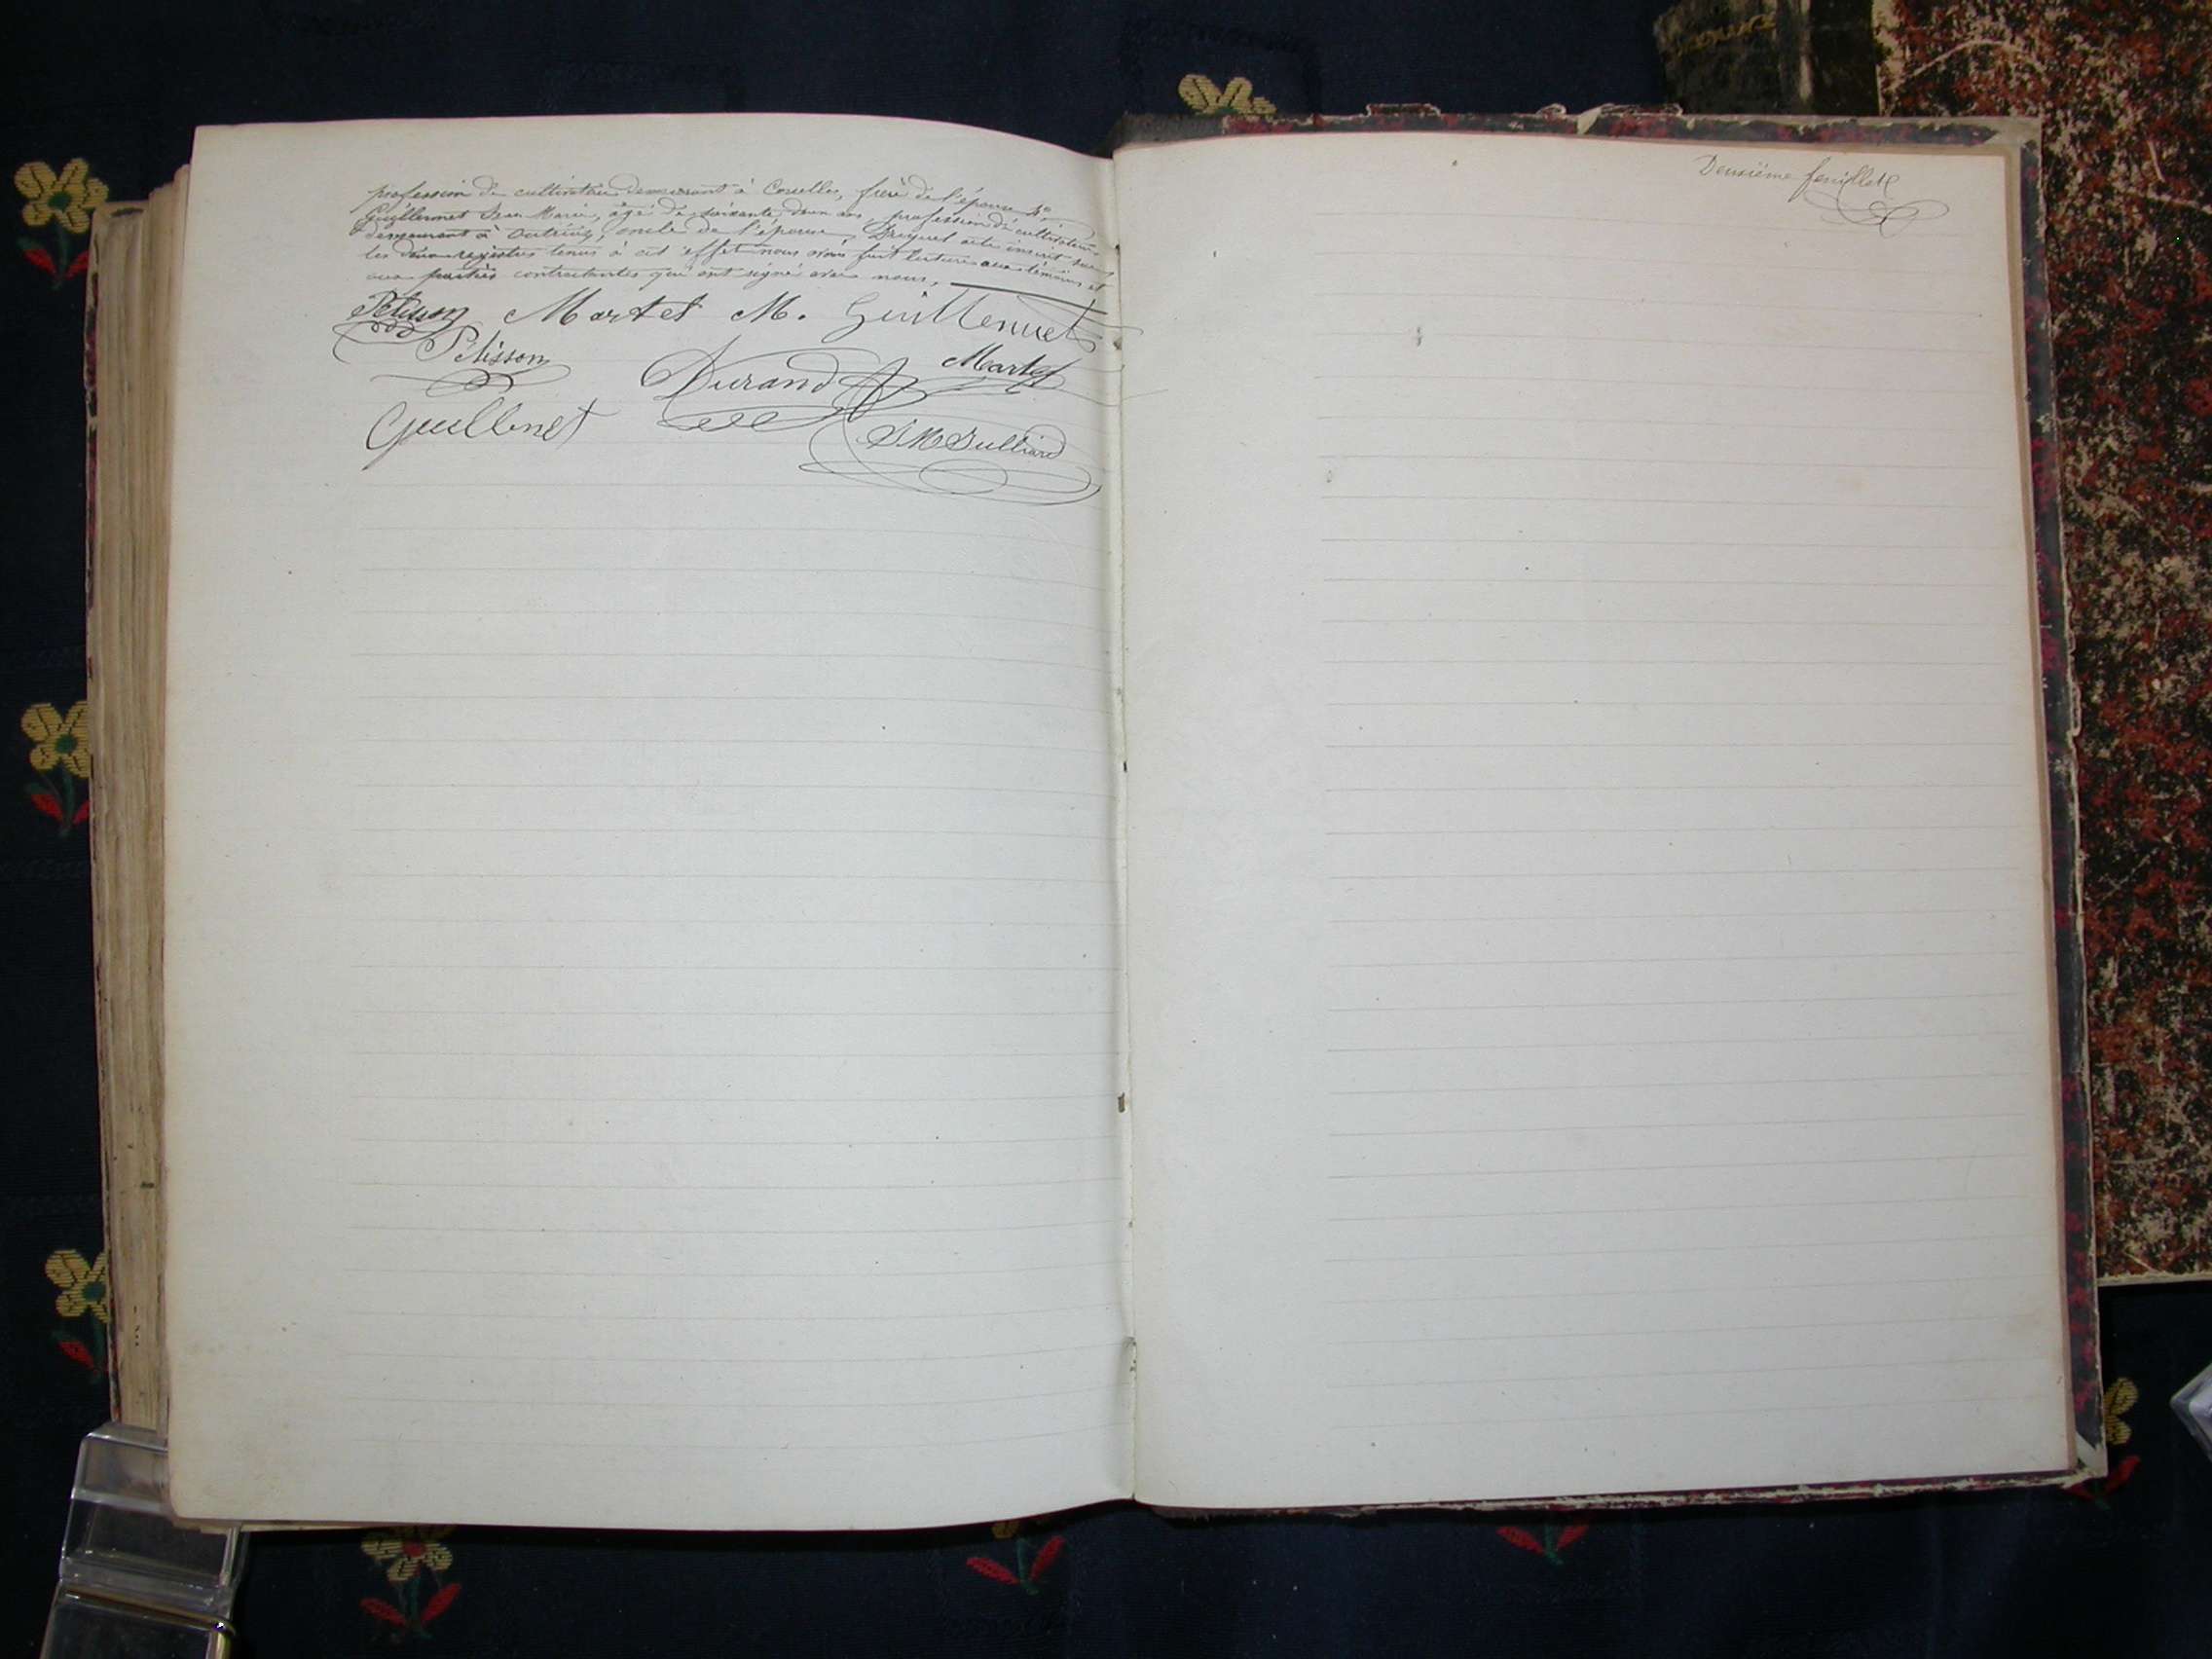 profession de cultivateur demeurant à Corcelles, frère de l'épouse 4°
Guillermet Jean Marie, âgé de soixante deux ans, profession de cultivateur
demeurant à Outriaz, oncle de l'épouse, Duquel acte inscrit sur
les deux registres tenus à cet effet nous avons fait lecture aux témoins et
aux parties contractantes qui ont signé avec nous,
Pelisson Martel M. Guillermet
Pelisson Durand Martel
Guillermet JM Julliard
Deuxième feuillet